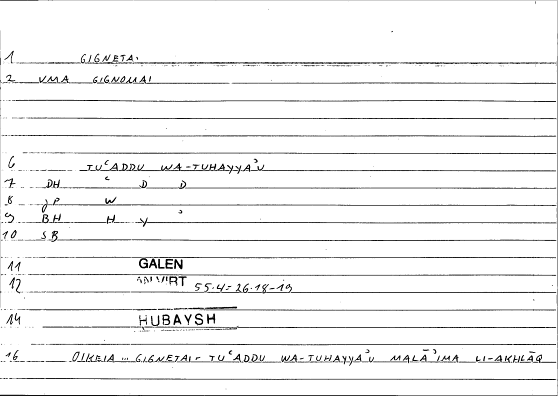 1 GIGNETAI
2 VMA GIGNOMAI
6 TUʿADDU WA-TUHAYYAʾU
7 DH ʿ D D
8 JP W
9 BH H Y ʾ
10 SB
11 GALEN
12 AN VIRT 55.4 = 26.18-19
14 HUBAYSH
16 OIKEIA ... GIGNETAI - TUʿADDU WA-TUHAYYAʾU MALĀʾIMA LI-AKHLĀQ